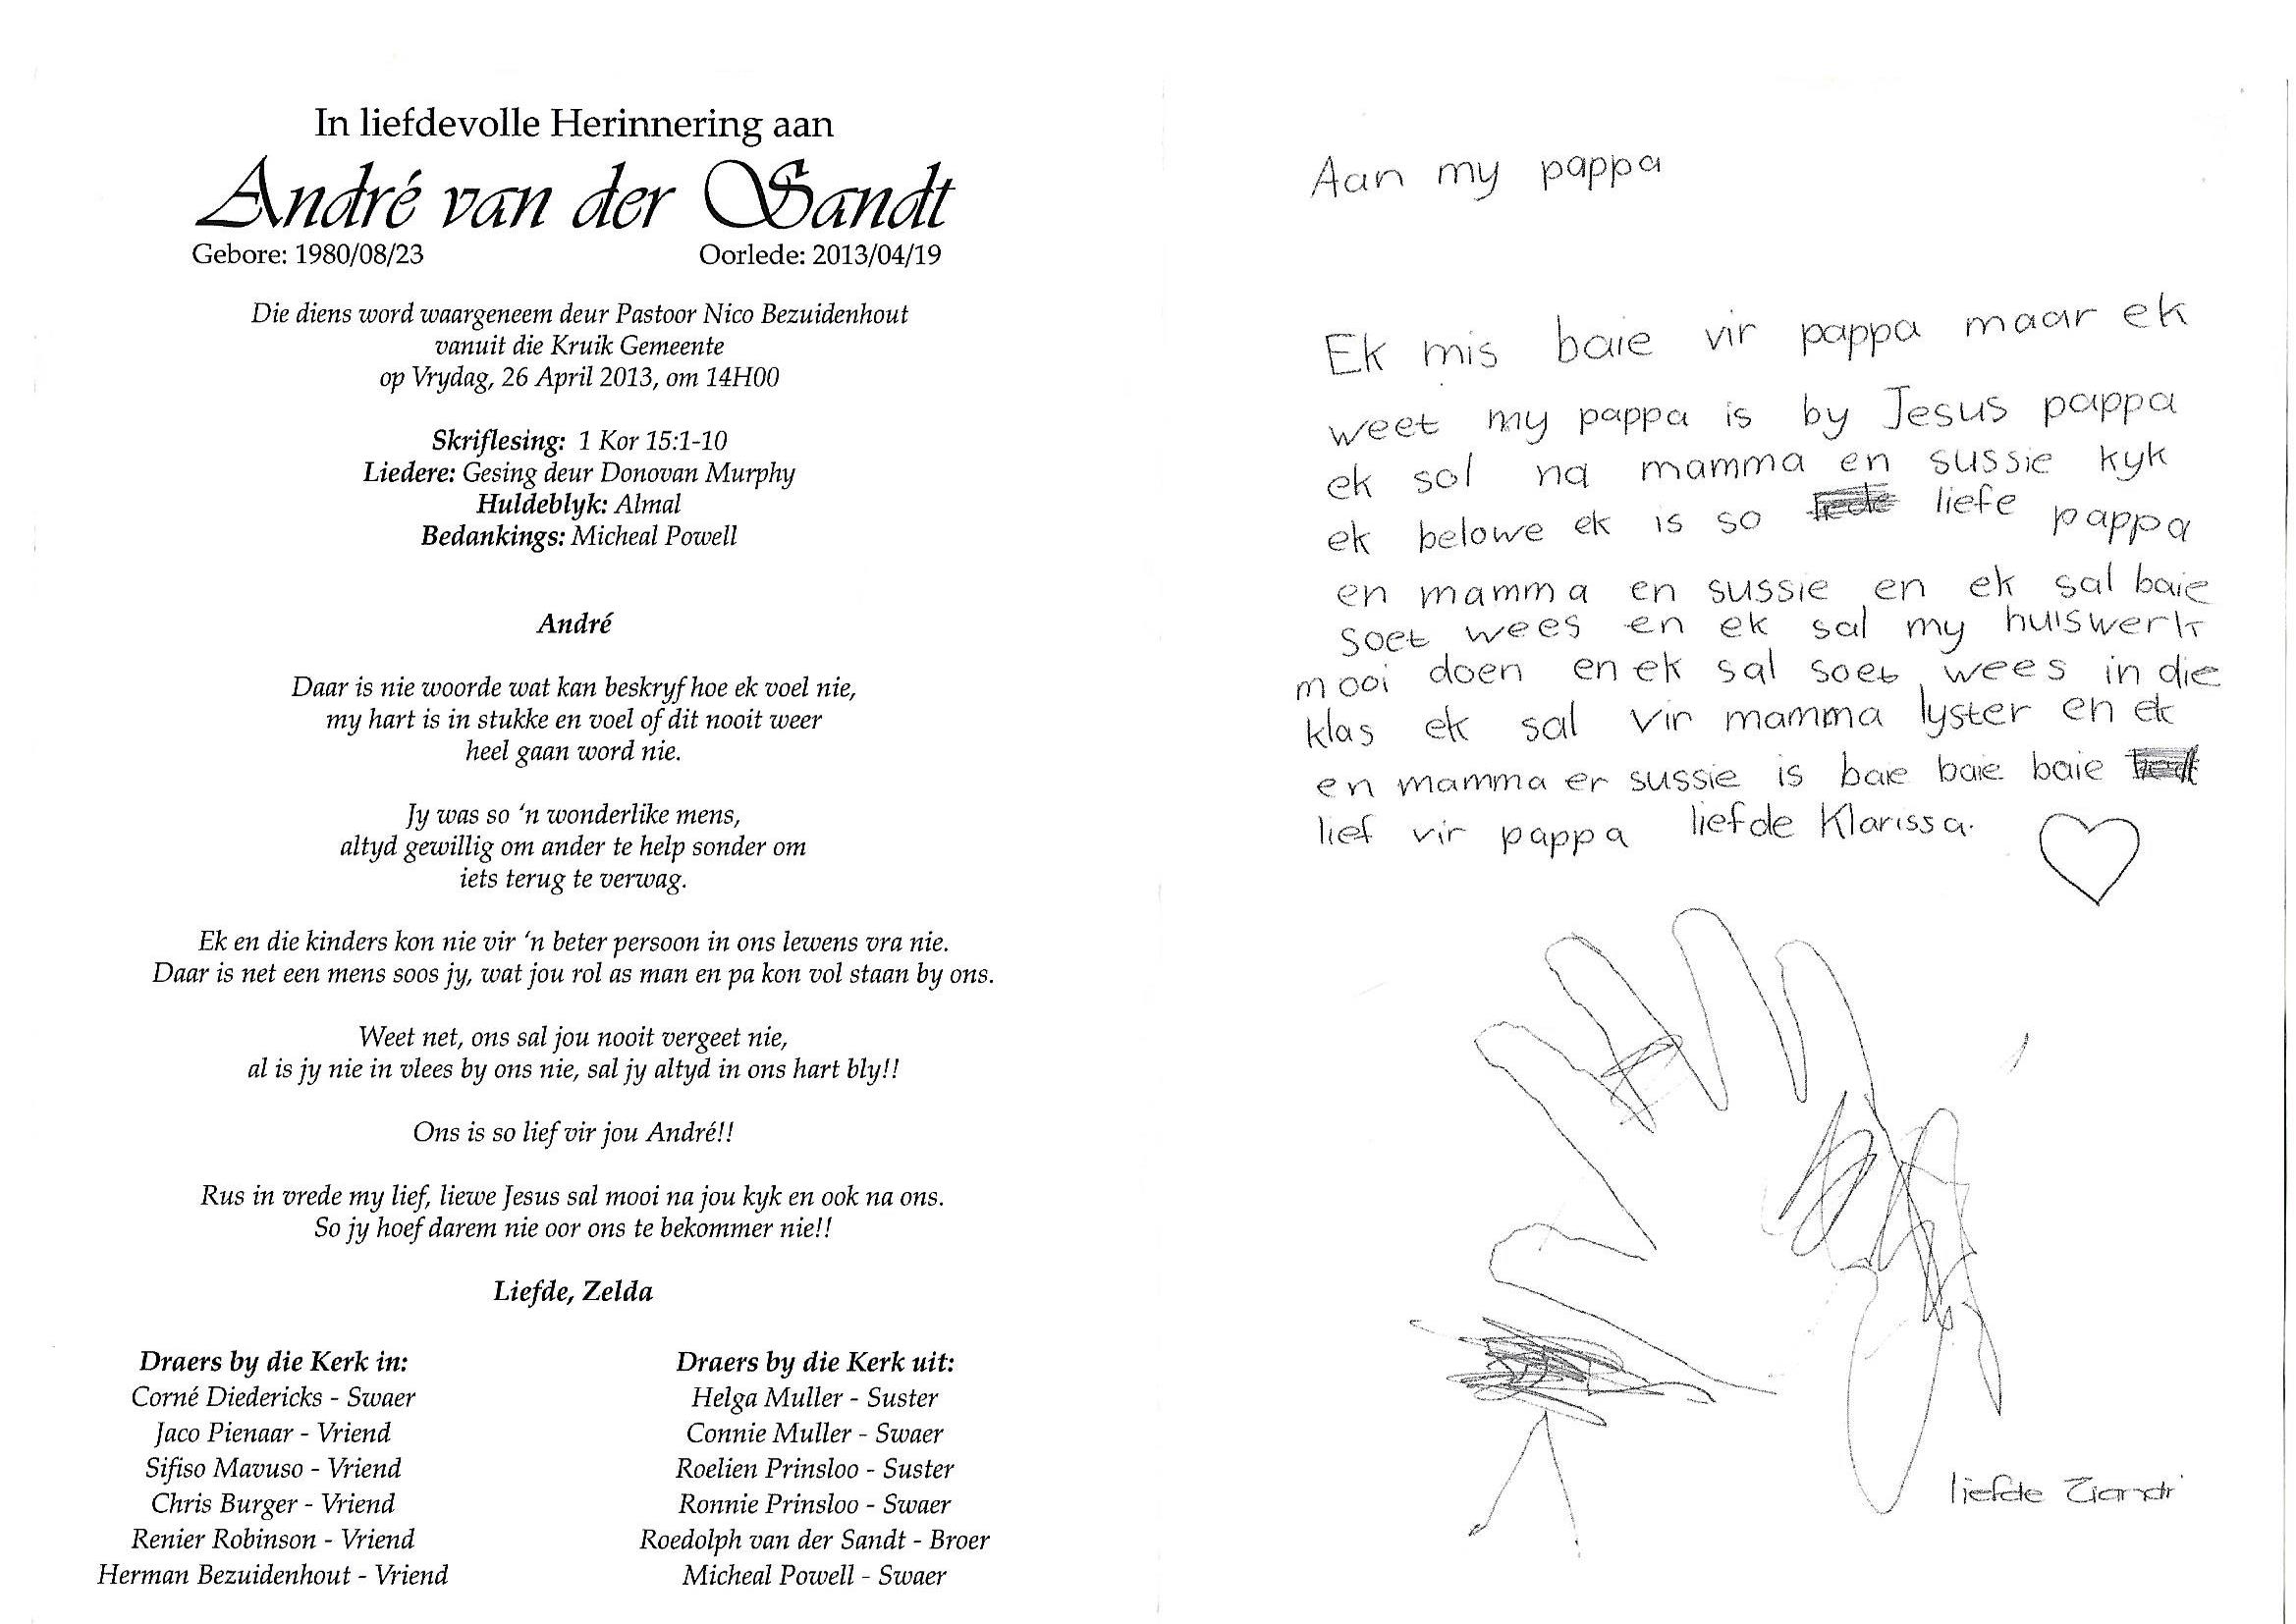 In liefdevolle Herinnering aan
André van der Sandt
Gebore: 1980/08/23 Oorlede: 2013/04/19
Die diens word waargeneem deur Pastoor Nico Bezuidenhout
vanuit die Kruik Gemeente
op Vrydag, 26 April 2013, om 14H00
Skriflesing: 1 Kor 15:1-10
Liedere: Gesing deur Donovan Murphy
Huldeblyk: Almal
Bedankings: Micheal Powell
André
Daar is nie woorde wat kan beskryf hoe ek voel nie,
my hart is in stukke en voel of dit nooit weer
heel gaan word nie.
Jy was so ‘n wonderlike mens,
altyd gewillig om ander te help sonder om
iets terug te verwag.
Ek en die kinders kon nie vir ‘n beter persoon in ons lewens vra nie.
Daar is net een mens soos jy, wat jou rol as man en pa kon vol staan by ons.
Weet net, ons sal jou nooit vergeet nie,
al is jy nie in vlees by ons nie, sal jy altyd in ons hart bly!!
Ons is so lief vir jou André!!
Rus in vrede my lief, liewe Jesus sal mooi na jou kyk en ook na ons.
So jy hoef darem nie oor ons te bekommer nie!!
Liefde, Zelda
Draers by die Kerk in:
Corné Diedericks - Swaer
Jaco Pienaar - Vriend
Sifiso Mavuso - Vriend
Chris Burger - Vriend
Renier Robinson - Vriend
Herman Bezuidenhout - Vriend
Draers by die Kerk uit:
Helga Muller - Suster
Connie Muller - Swaer
Roelien Prinsloo - Suster
Ronnie Prinsloo - Swaer
Roedolph van der Sandt - Broer
Micheal Powell - Swaer
Aan my pappa
Ek mis baie vir pappa maar ek
weet my pappa is by Jesus pappa
ek sol na mamma en sussie kyk
ek belowe ek is so liefe pappa
en mamma en sussie en ek sal baie
soet wees en ek sal my huiswerk
mooi doen en ek sal soet wees in die
klas ek sal vir mamma lyster en ek
en mamma er sussie is baie baie baie
lief vir pappa liefde Klarissa.
liefde Ziandri